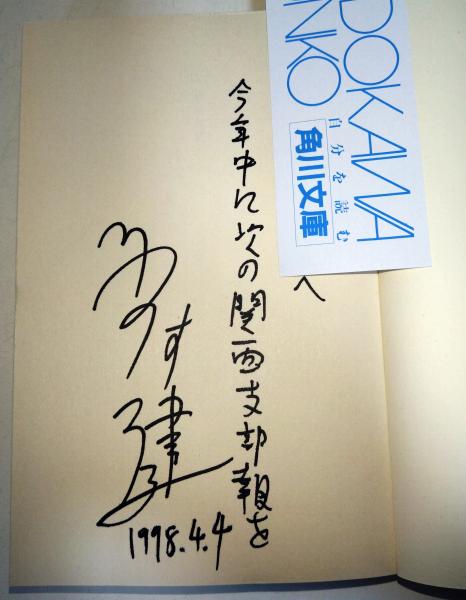 へ
今年中に次の関西支部報を
みのす健
1998.4.4
DOKAWA
NKO
自分を読む
角川文庫